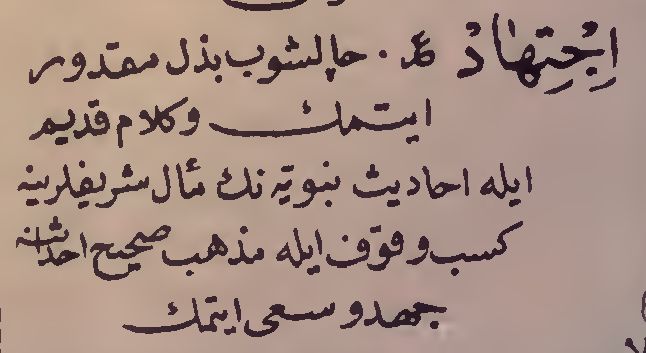 اِجْتِهَادْ ع. چالشوب بذل مقدور
ايتمك وكلام قديم
ايله احاديث نبويه نك مأل شريفلرينه
كسب وقوف ايله مذهب صحيح احداثنه
جهد و سعى ايتمك